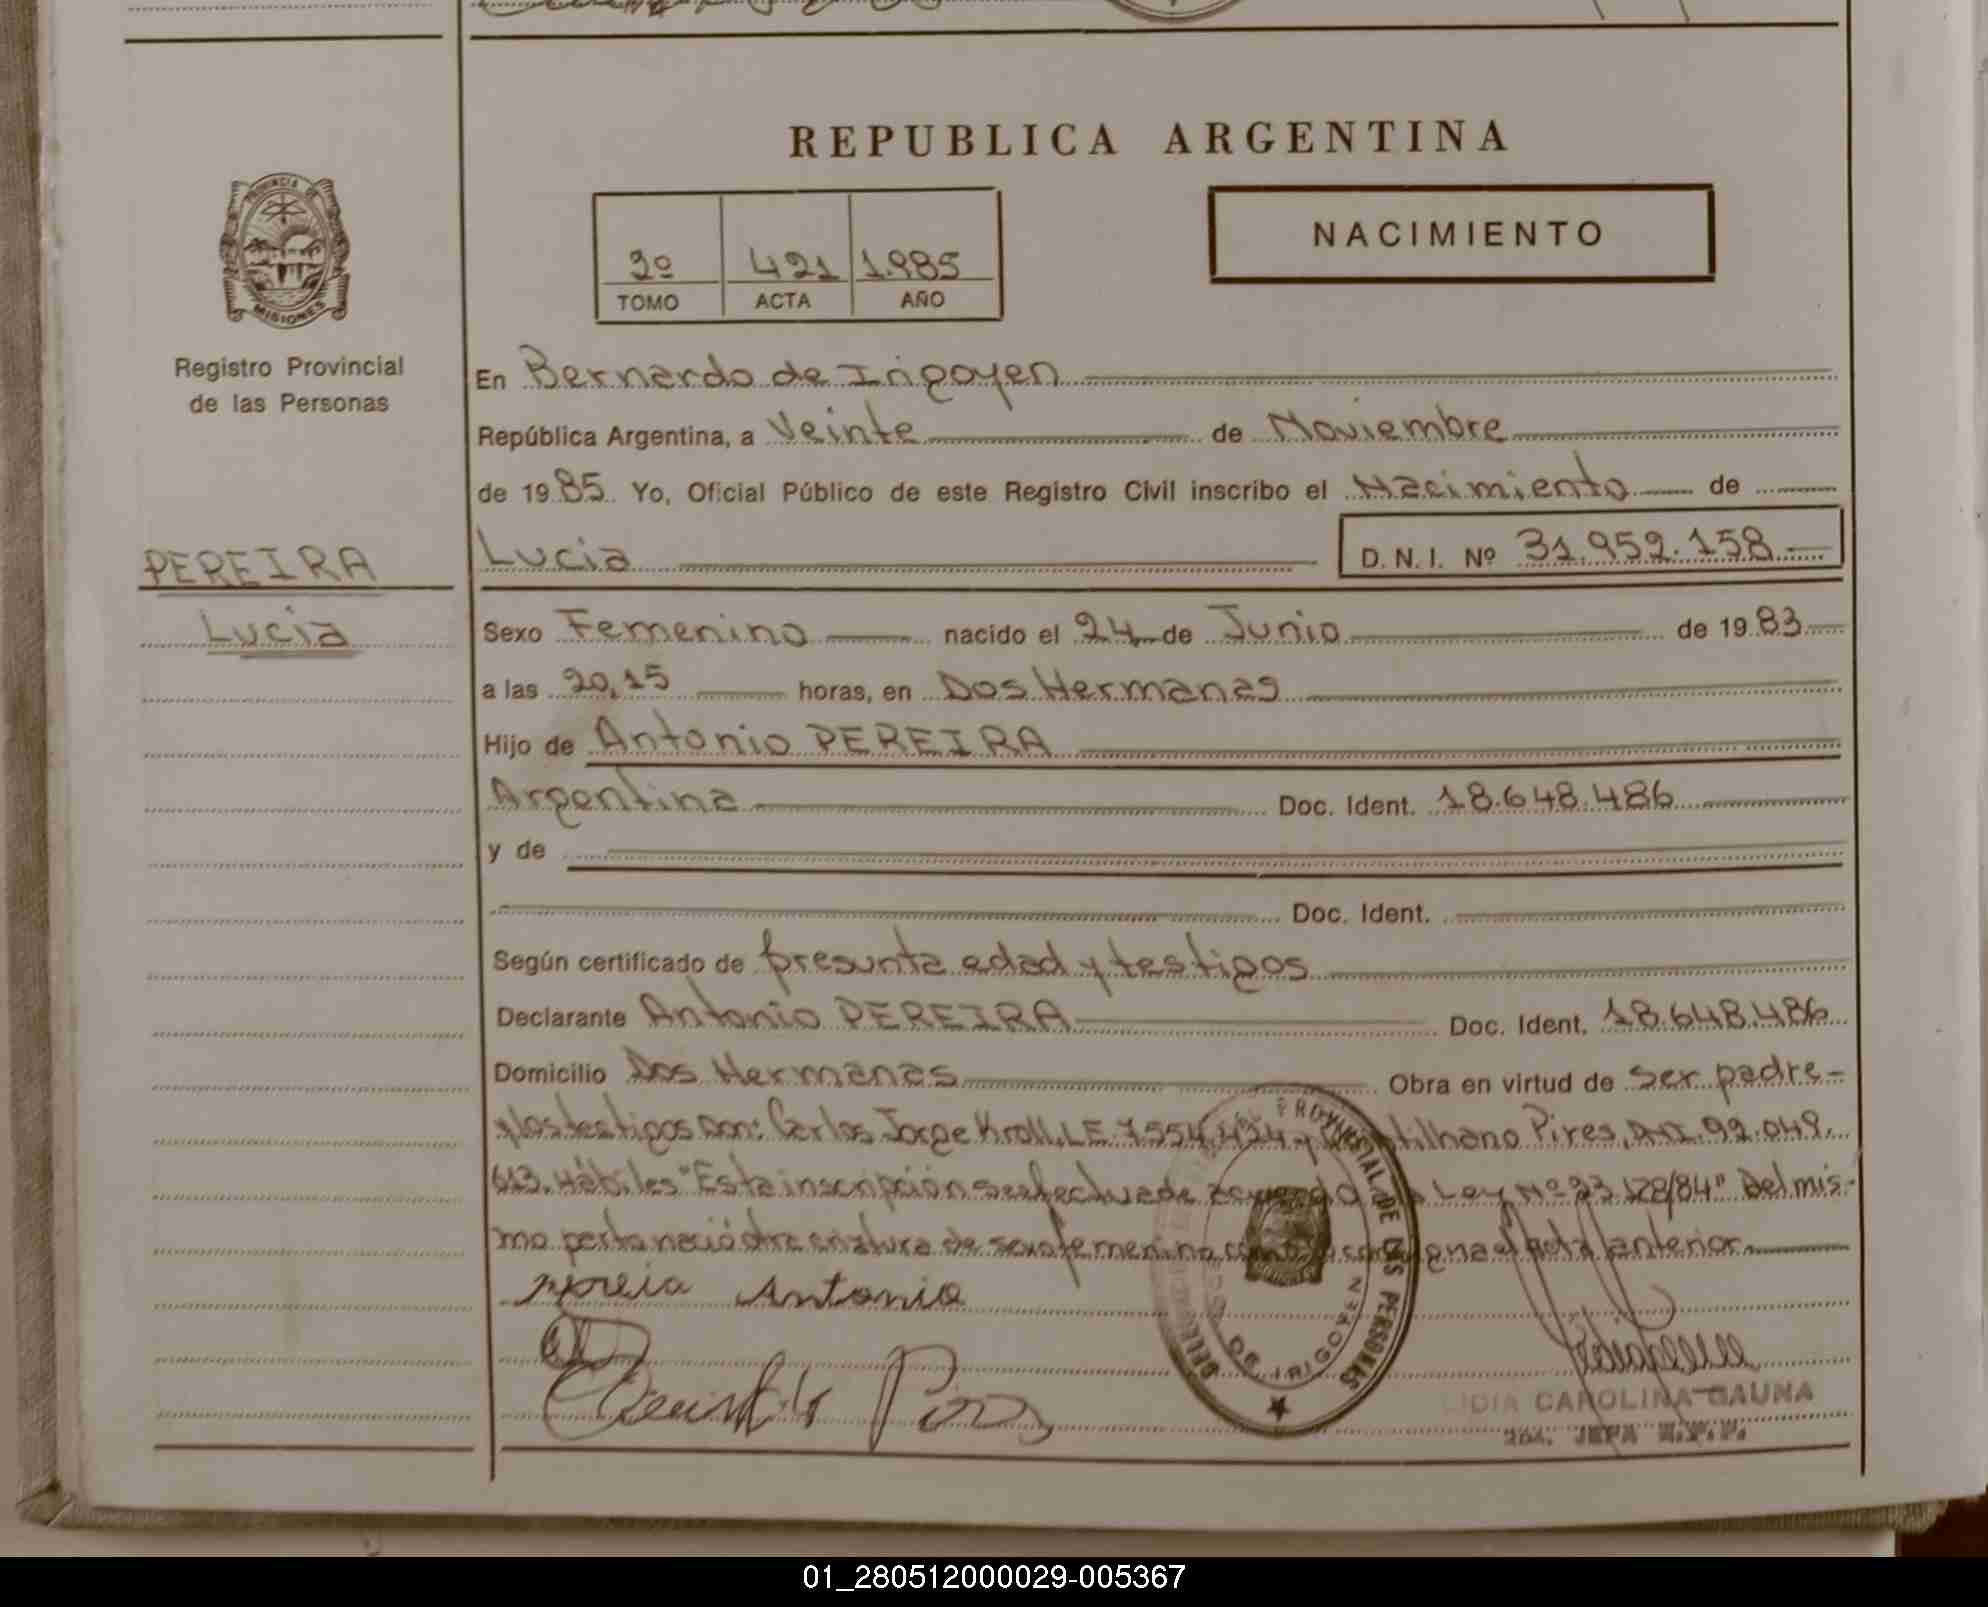 REPUBLICA ARGENTINA
PROVINCIA DE
MISIONES
Registro Provincial
de las Personas
2º 421 1.985
TOMO ACTA AÑO
NACIMIENTO
En Bernardo de Irigoyen
República Argentina, a Veinte de Noviembre
de 1985 Yo, Oficial Público de este Registro Civil inscribo el Nacimiento de
PEREIRA
Lucia
Lucia D. N. I. Nº 31.959.158
Sexo Femenino nacido el 24 de Junio de 1983
a las 20,15 horas, en Dos Hermanas
Hijo de Antonio PEREIRA
Argentina Doc. Ident. 18.648.486
y de
Doc. Ident.
Según certificado de presunta edad y testigos
Declarante Antonio PEREIRA Doc. Ident. 18.648.486
Domicilio Dos Hermanas Obra en virtud de ser padre-
y los testigos son: Carlos Jorge Kroll, L.E. 7.554.424 y Pires, D.N.I. 92.049.
613. Hábiles "Esta inscripción se efectua de acuerdo a Ley Nº 23.128/84" Del mis-
mo parto nació otra criatura de sexo femenino como consigna el acta anterior.
Antonio
PROVINCIAL DE LAS PERSONAS
DE IRIGOYEN
LIDIA CAROLINA GAUNA
JEFA
01_280512000029-005367